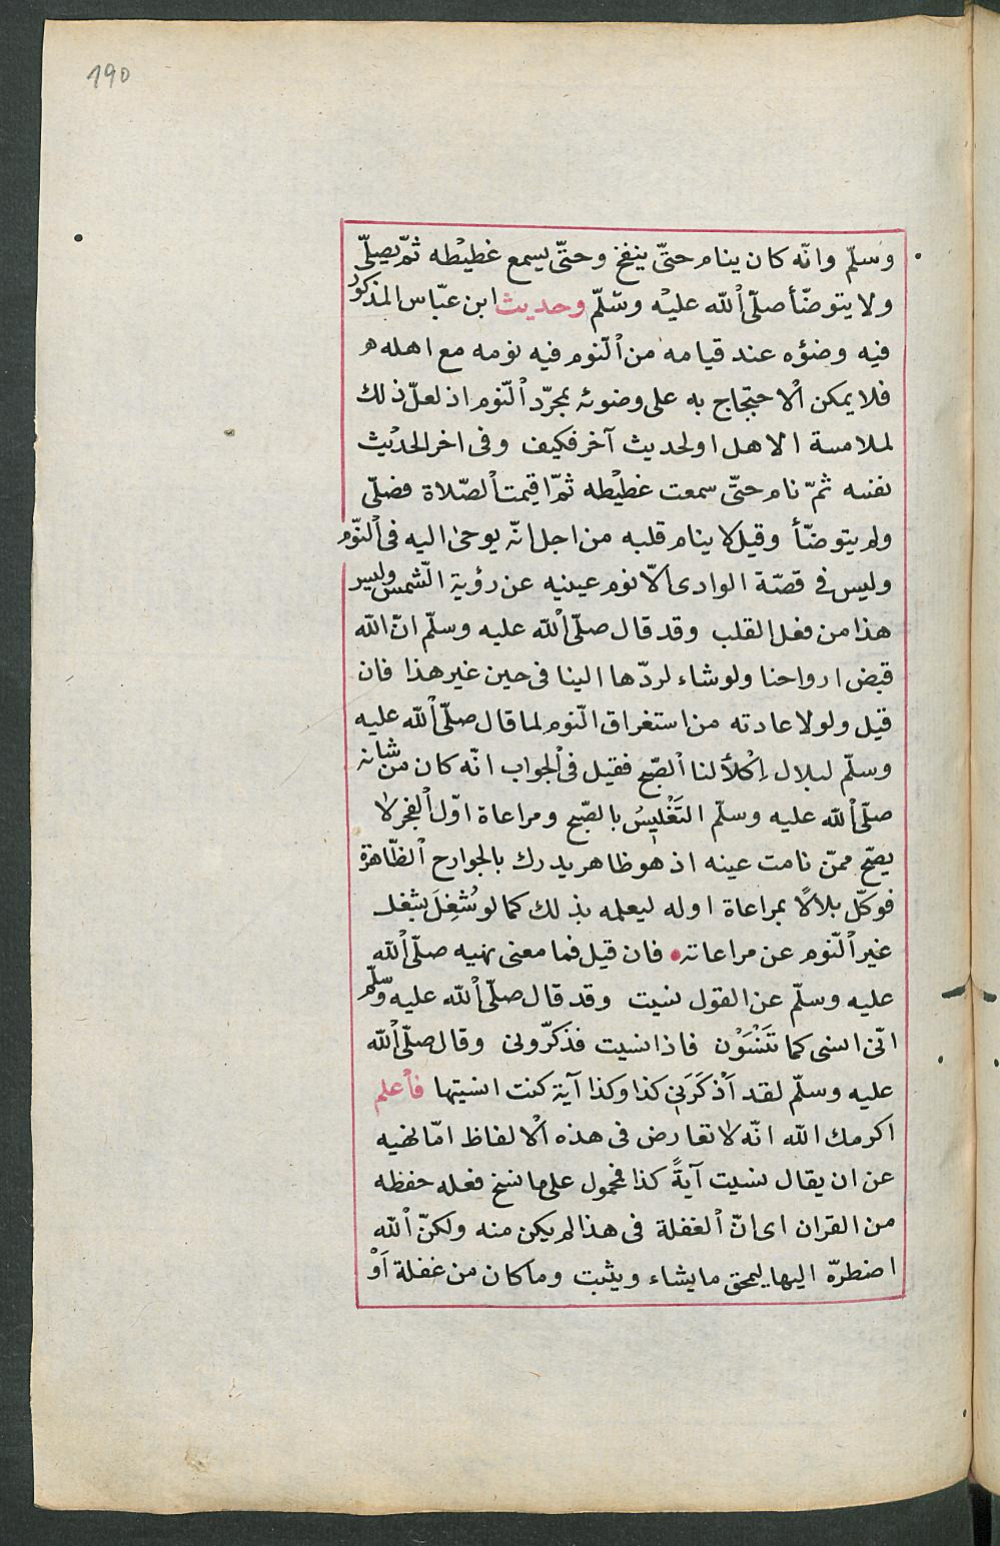 190
وسلّم وانّه كان ينام حتّى ينفخ وحتّى يسمع غطيطه ثمّ يصلّى
ولا يتوضّأ صلّى الله عليه وسّلّم وحديث ابن عبّاس المذكور
فيه وضؤه عند قيامه من النّوم فيه نومه مع اهله
فلا يمكن الاحتجاج به على وضوئه بمجرّد النّوم اذ لعلّ ذلك
لملامسة الاهل او لحديث آخر فكيف وفى اخر الحديث
نفسه ثمّ نام حتّى سمعت غطيطه ثمّ اقيمت الصّلاة فصلّى
ولم يتوضّأ وقيل لا ينام قلبه من اجل انّه يوحى اليه فى النّوم
وليس فى قصّة الوادى الّا نوم عينيه عن رؤية الشّمس وليس
هذا من فعل القلب وقد قال صلّى الله عليه وسلّم انّ الله
قبض ارواحنا ولو شاء لردّها الينا فى حين غير هذا فان
قيل ولولا عادته من استغراق النّوم لما قال صلّى الله عليه
وسلّم لبلال اِكْلأ لنا الصّبح فقيل فى الجواب انّه كان من شانه
صلّى الله عليه وسلّم التَغْلِيسُ بالصّبح ومراعاة اوّل الفجر لا
يصحّ ممّن نامت عينه اذ هو ظاهر يدرك بالجوارح الظّاهرة
فوكّل بلالًا بمراعاة اوله ليعلمه بذلك كما لو شُغِلَ بشغل
غير النّوم عن مراعاته فان قيل فما معنى نهيه صلّى الله
عليه وسلّم عن القول نسيت وقد قال صلّى الله عليه وسلّم
انّى انسى كما تَنْسَوْن فاذا نسيت فذكّرونى وقال صلّى الله
عليه وسلّم لقد اَذْكَرَنِى كذا وكذا آية كنت انسيتها فاعلم
اكرمك الله انّه لا تعارض فى هذه الالفاظ امّا نهيه
عن ان يقال نسيت آيةً كذا فمحمول على ما نسخ فعله حفظه
من القران اى انّ الغفلة فى هذا لم يكن منه ولكنّ الله
اضطرّه اليها ليمحق ما يشاء ويثبت وما كان من غفلة اَوْ